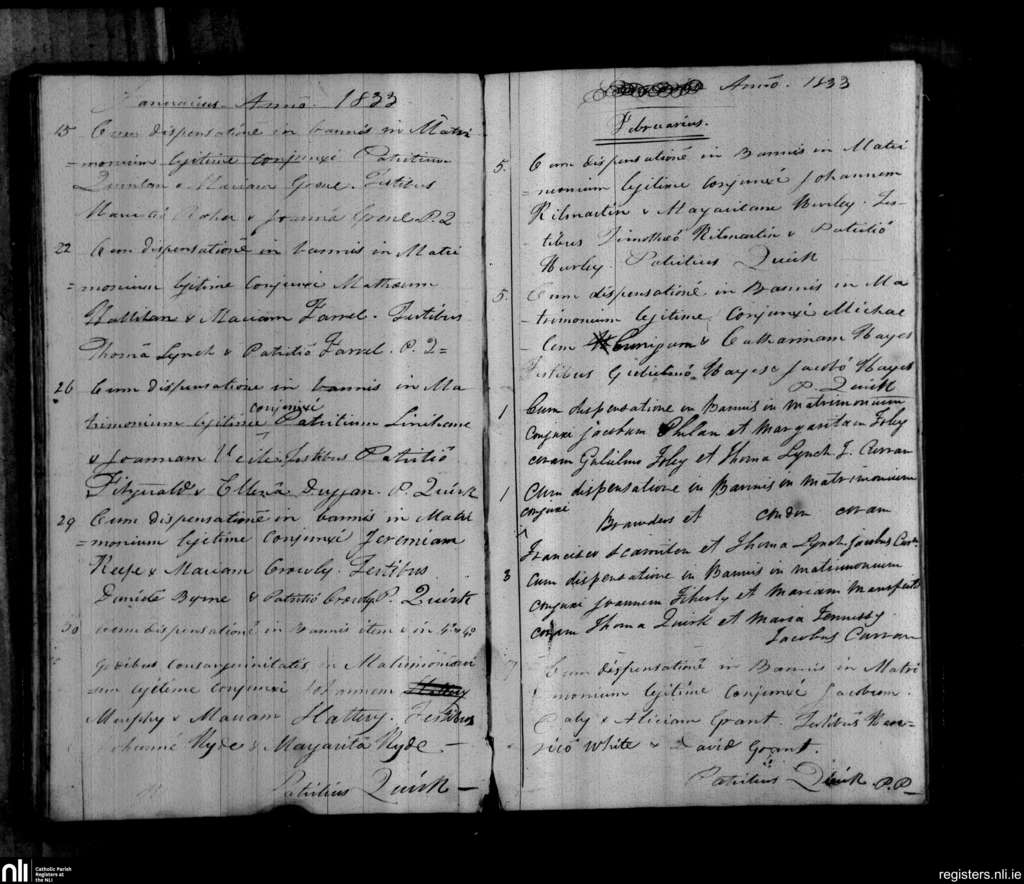 Januarius Anno. 1833
15 Cum dispensatione in bannis in Matri
=monium legitime conjunxi Patritium
Quinlan & Mariam Greul. Testibus
& Joanna Greul P. Q
22 Cum dispensatione in bannis in Matri
=monium legitime conjunxi Matheum
Hallinan & Mariam Farrel. Testibus
Thoma Lynch & Patritio Farrel. P. Q=
26 Cum dispensatione in bannis in Ma
trimonium legitime conjunxi Patritium Linehane
& Joannam Testibus Patritio
Fitzgerald & Ellena Duggan. P. Quirk
29 Cum dispensatione in bannis in Matri
=monium legitime conjunxi Jeremiam
Keefe & Mariam Crowly. Testibus
Daniele Byrne & Patritio Crowly P. Quirk
30 cum dispensatione in Bannis item & in 4to & 4to
gradibus Consanguinitatis in Matrimonium
legitime conjunxi Johannem
Murphy & Mariam Slattery. Testibus
Johanne Hyde & Margarita Hyde.
Patritius Quirk
Anno 1833
Februarius.
5. Cum dispensatione in Bannis in Matri
=monium legitime conjunxi Johannem
Kilmartin & Margaritam Hurley. Tes-
tibus Timotheo Kilmartin & Patritio
Hurley. Patritius Quirk
5. Cum dispensatione in Bannis in Ma
-trimonium legitime Conjunxi Michae
-lem & Catharinam Hayes
Testibus Gulielmo Hayes & Jacobo Hayes
P. Quirk
1 Cum dispensatione in Bannis in matrimonium
conjuxi jacobum Phlan et Margaritam Foley
coram Gulielmo Foley et Thoma Lynch J. Curran
1 Cum dispensatione in Bannis in matrimonium
conjuxi
et Condon coram
Francisco Scanlon et Thoma Lynch jacobus Curr.
3 cum dispensatione in Bannis in matrimonium
conjuxi joannem et mariam
coram Thoma Quirk et maria Fennessy
Jacobus Curran
7 Cum dispensatione in Bannis in Matri
monium legitime Conjunxi Jacobum
Daly & Aliciam Grant. Testibus Hen-
rico White & David Grant.
Patritius Quirk P.P-
nli
Catholic Parish
Registers at
the NLI
registers.nli.ie